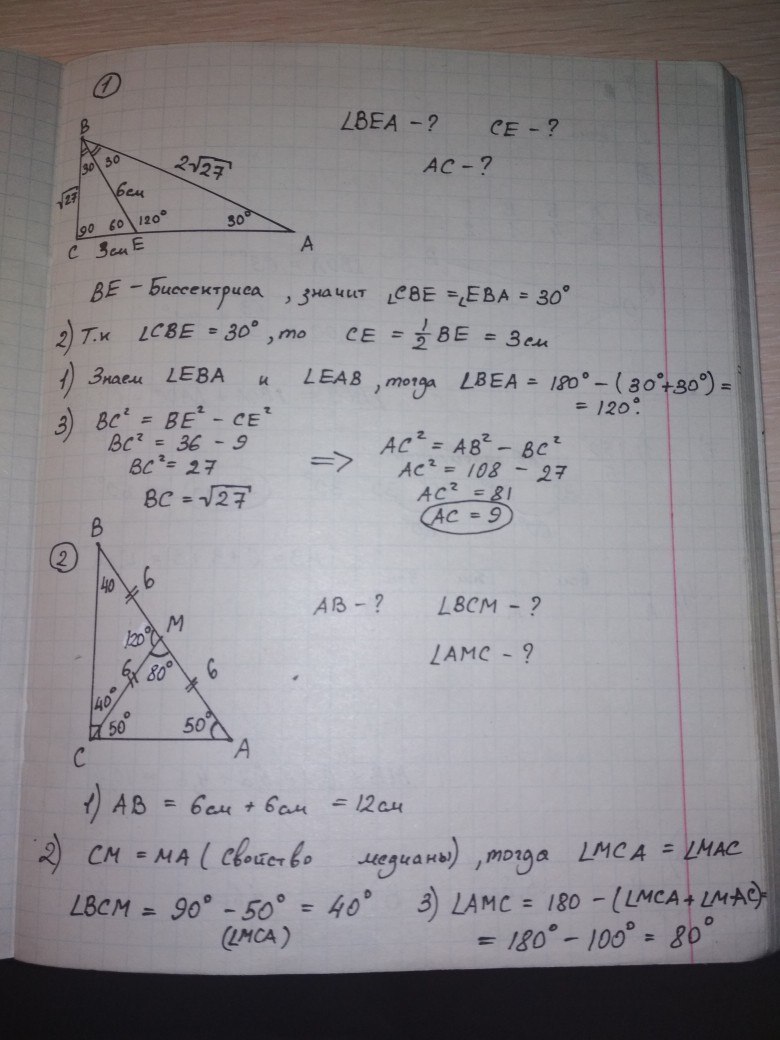 1
∠BEA - ? CE - ?
AC - ?
B
30 30 2√27
√27 6см
90 60 120° 30°
C 3см E A
BE - Биссектриса, значит ∠CBE = ∠EBA = 30°
2) Т.к ∠CBE = 30°, то CE = 1/2 BE = 3см
1) Знаем ∠EBA и ∠EAB, тогда ∠BEA = 180° - (30°+30°) =
= 120°.
3) BC² = BE² - CE²
BC² = 36 - 9
BC² = 27
BC = √27
=>
AC² = AB² - BC²
AC² = 108 - 27
AC² = 81
AC = 9
2
B
40 6
M
120°
6 80° 6
40°
50° 50°
C A
AB - ? ∠BCM - ?
∠AMC - ?
1) AB = 6см + 6см = 12см
2) CM = MA (свойство медианы), тогда ∠MCA = ∠MAC
∠BCM = 90° - 50° = 40° 3) ∠AMC = 180 - (∠MCA + ∠MAC)=
(∠MCA) = 180° - 100° = 80°